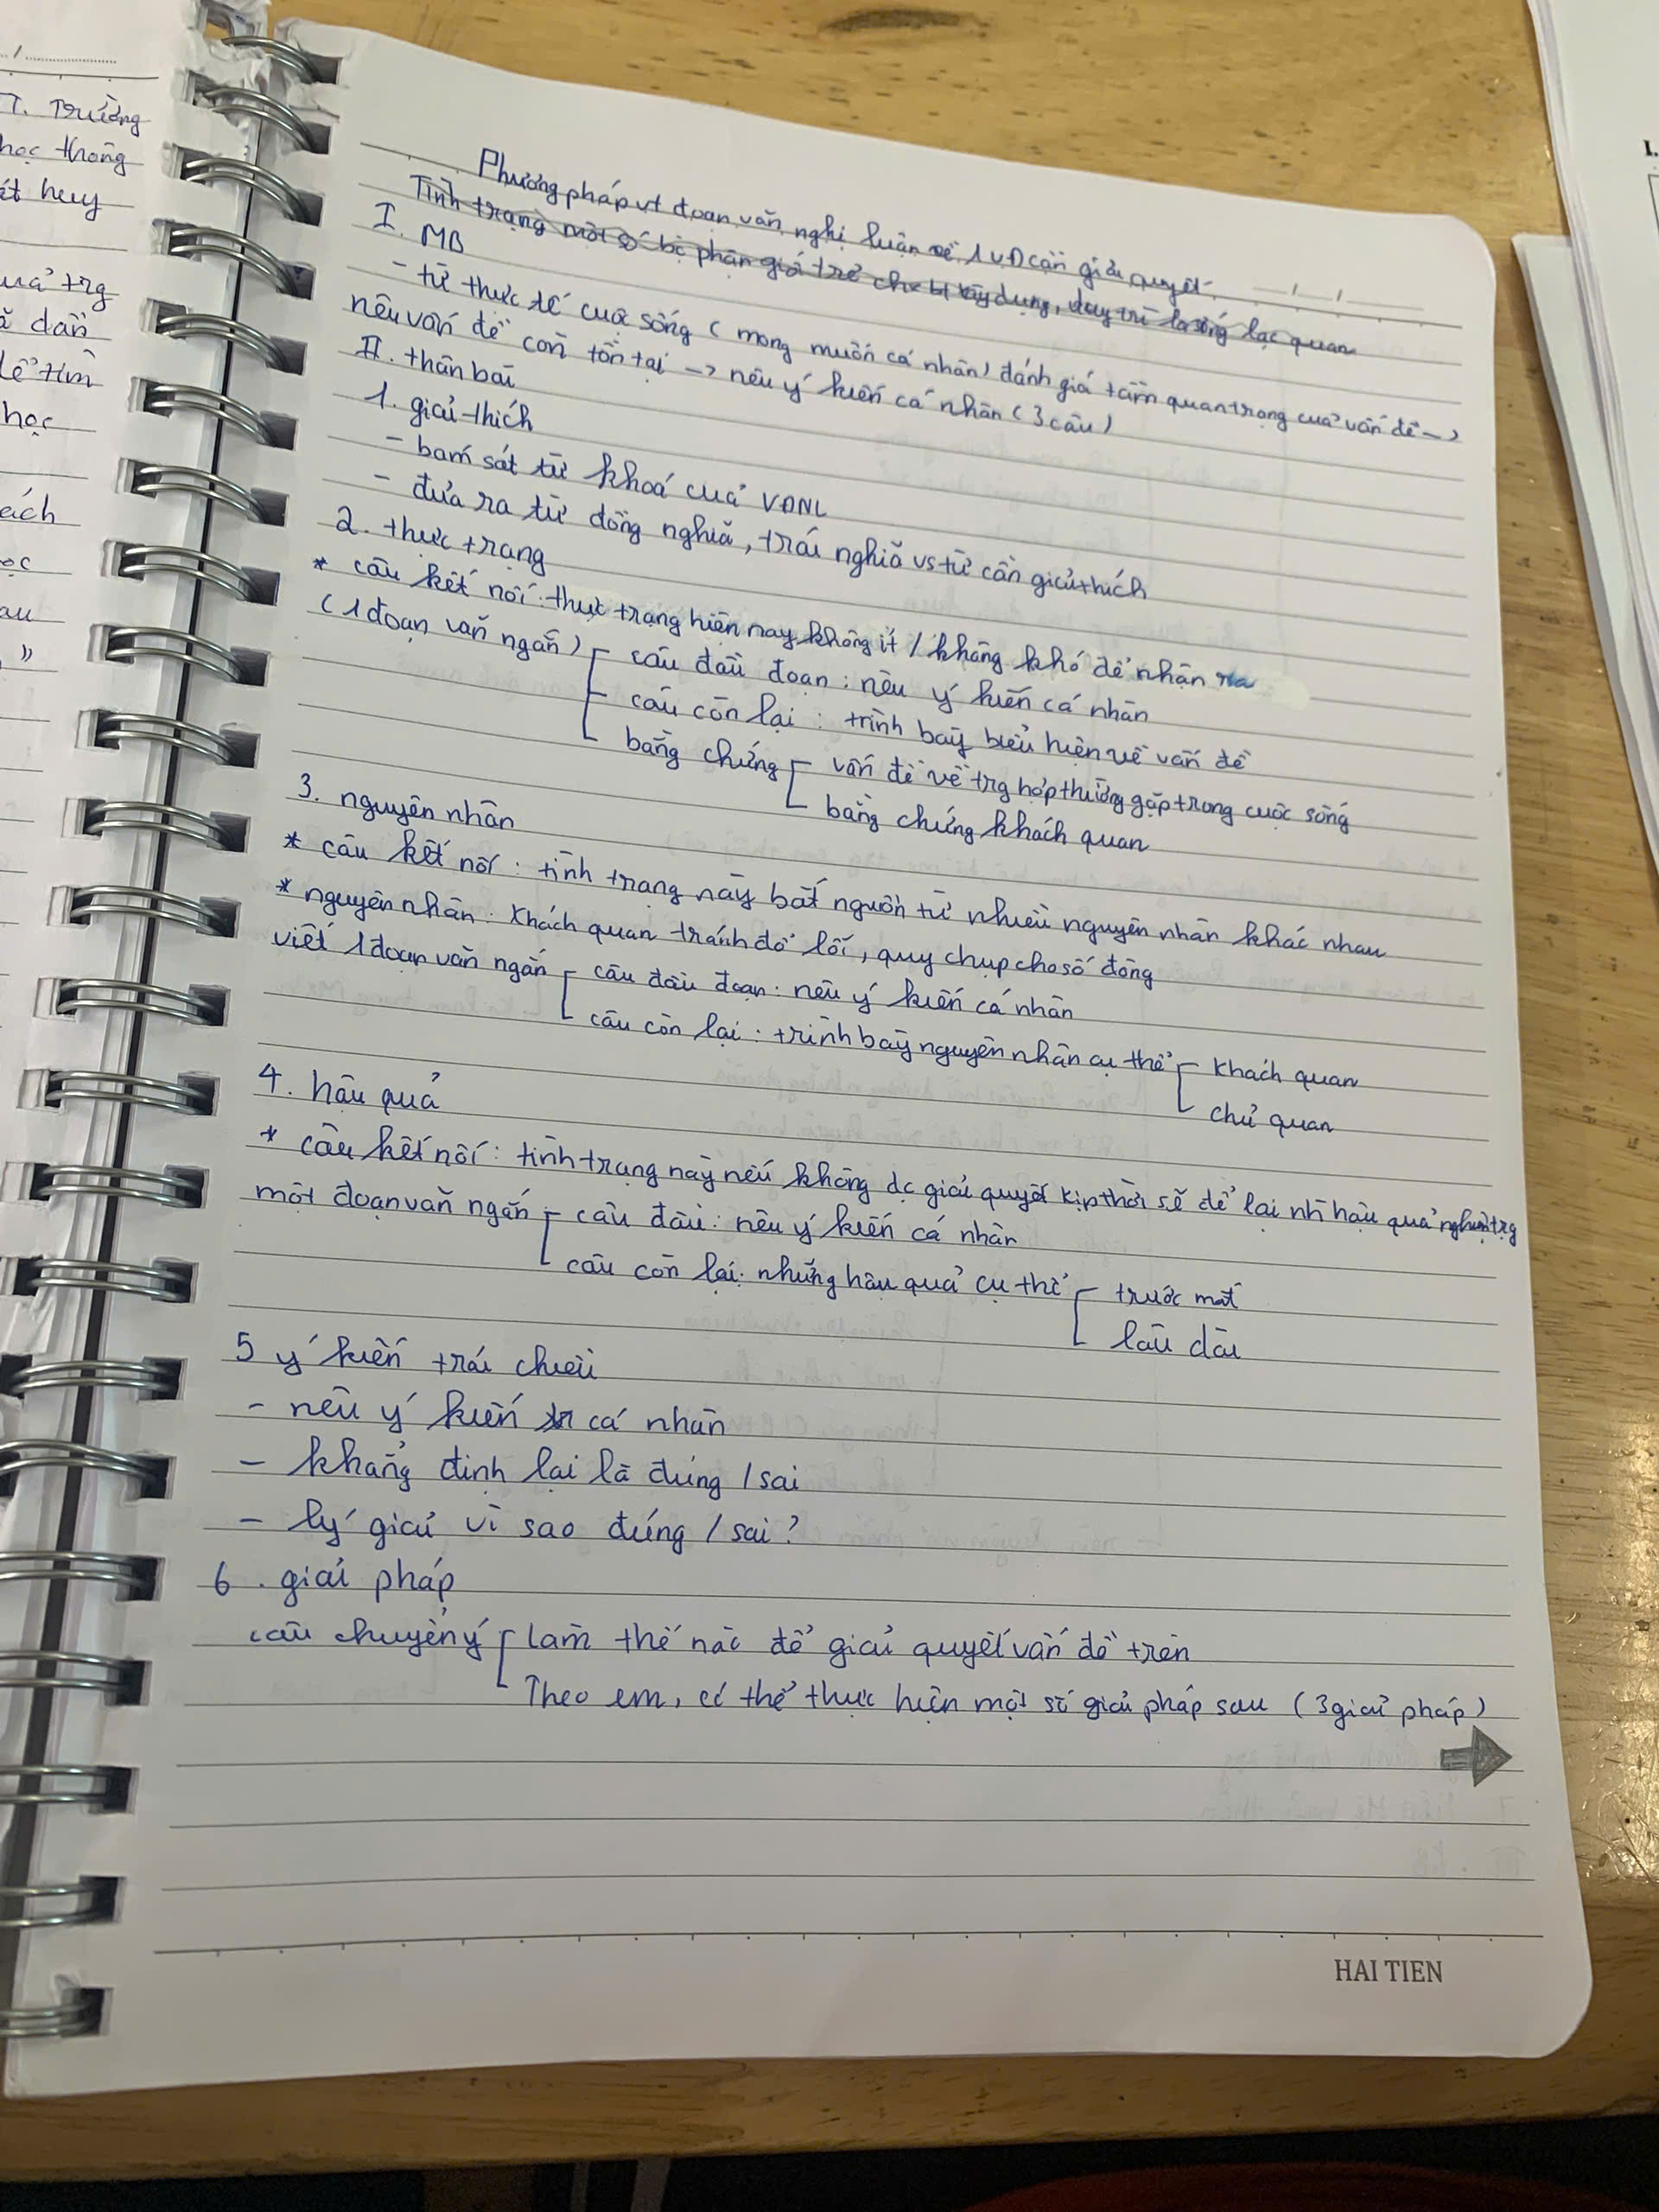 I. Trường
học thông
át huy
uả trg
ã dần
để tìm
học
ách
ọc
au
"
Phương pháp vt đoạn văn nghị luận về 1 VĐ cần giải quyết
Tình trạng một số bộ phận giới trẻ xây dựng, duy trì lối sống lạc quan
I. MB
- từ thực tế cuộc sống (mong muốn cá nhân) đánh giá tầm quan trọng của vấn đề ->
nêu vấn đề còn tồn tại -> nêu ý kiến cá nhân (3 câu)
II. thân bài
1. giải thích
- bám sát từ khoá của VĐNL
- đưa ra từ đồng nghĩa, trái nghĩa vs từ cần giải thích
2. thực trạng
* câu kết nối: thực trạng hiện nay không ít / không khó để nhận ra
(1 đoạn văn ngắn) câu đầu đoạn: nêu ý kiến cá nhân
câu còn lại: trình bày biểu hiện về vấn đề
bằng chứng vấn đề về trg hợp thường gặp trong cuộc sống
bằng chứng khách quan
3. nguyên nhân
* câu kết nối: tình trạng này bắt nguồn từ nhiều nguyên nhân khác nhau
* nguyên nhân: khách quan tránh đổ lỗi, quy chụp cho số đông
viết 1 đoạn văn ngắn câu đầu đoạn: nêu ý kiến cá nhân
câu còn lại: trình bày nguyên nhân cụ thể khách quan
chủ quan
4. hậu quả
* câu kết nối: tình trạng này nếu không dc giải quyết kịp thời sẽ để lại nh hậu quả nghiêm trg
một đoạn văn ngắn câu đầu: nêu ý kiến cá nhân
câu còn lại: những hậu quả cụ thể trước mắt
lâu dài
5 ý kiến trái chiều
- nêu ý kiến cá nhân
- khẳng định lại là đúng / sai
- lý giải vì sao đúng / sai?
6. giải pháp
câu chuyển ý làm thế nào để giải quyết vấn đề trên
Theo em, có thể thực hiện một số giải pháp sau (3 giải pháp)
HAI TIEN
I.